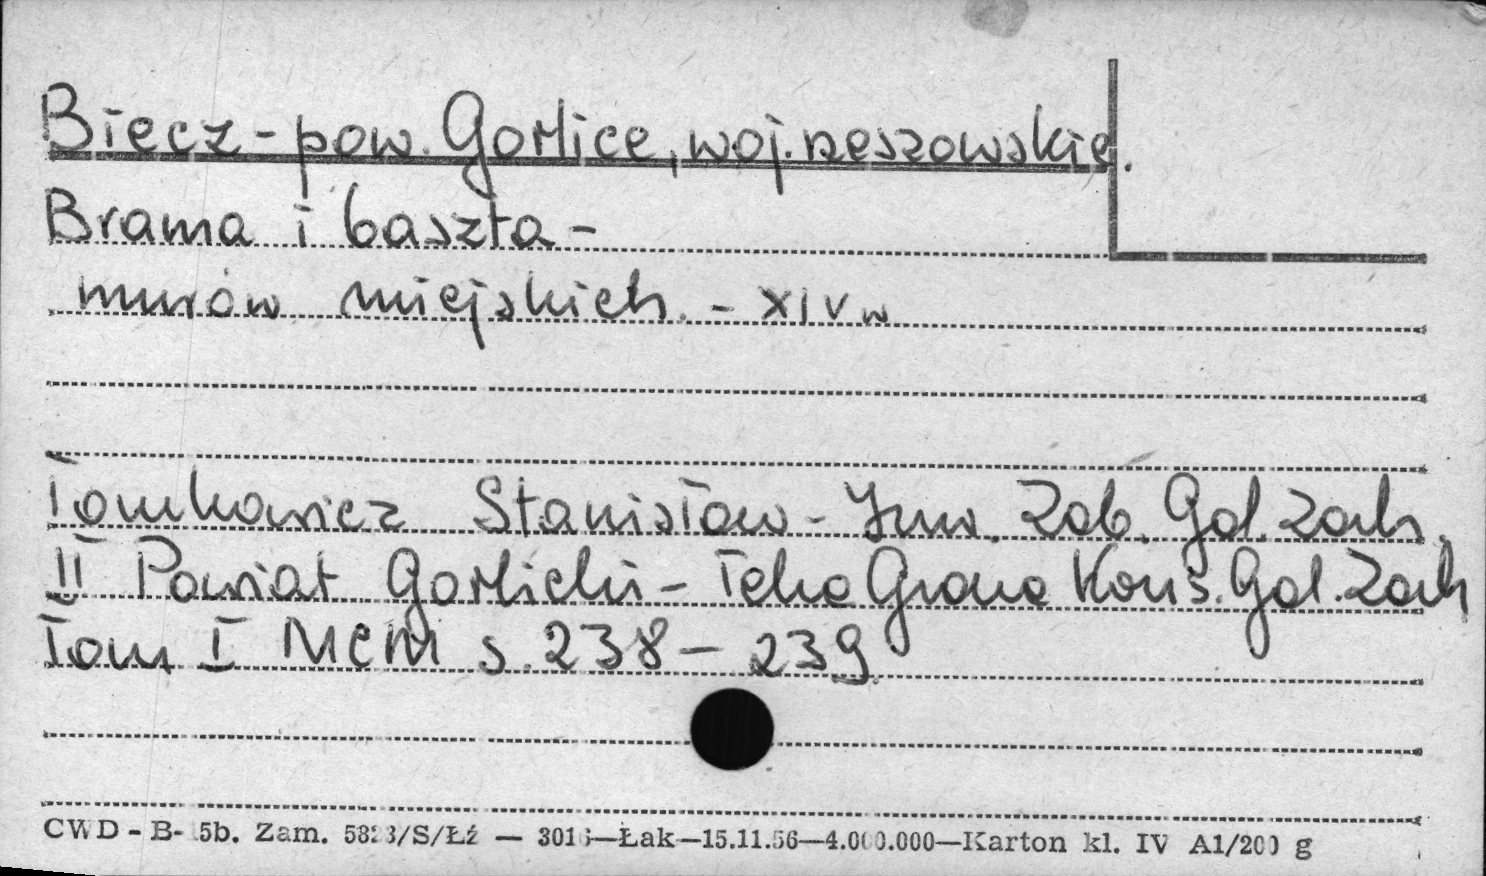 Biecz - pow. Gorlice, woj. rzeszowskie.
Brama i baszta -
murów miejskich. - XIV w
Tomkowicz Stanisław - Inw. Zab. Gal. Zach.
II Powiat Gorlicki - Teka Grona Kons. Gal. Zach
Tom I MCM s. 238 - 239.
CWD - B- 5b. Zam. 5823/S/Łź — 3016—Łak—15.11.56—4.000.000—Karton kl. IV A1/200 g